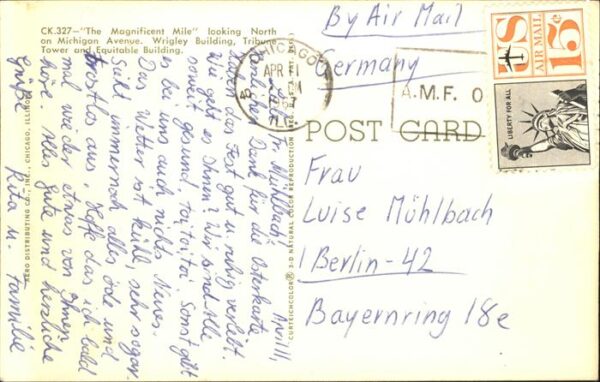 CK.327—"The Magnificent Mile" looking North
on Michigan Avenue. Wrigley Building, Tribune
Tower and Equitable Building.
April 11,
Liebe Frau Mühlbach,
Herzlichen Dank für die Osterkarte,
haben das Fest gut u. ruhig verlebt.
Wie geht es Ihnen? Wir sind alle
soweit gesund, toi, toi, toi. Sonst gibt
es bei uns auch nichts Neues.
Das Wetter ist kühl, sehr sogar.
Sieht immer noch alles öde und
trostlos aus. Hoffe das ich bald
mal wieder etwas von Ihnen
höre. Alles Gute und herzliche
Grüße
Rita u. Familie
AERO DISTRIBUTING CO., INC., CHICAGO, ILLINOIS
CURTEICHCOLOR® 3-D NATURAL COLOR REPRODUCTION
CHICAGO
APR 11
PM
By Air Mail
Germany
A.M.F. O
POST CARD
US
AIR MAIL
15¢
LIBERTY FOR ALL
Frau
Luise Mühlbach
1 Berlin-42
Bayernring 18e